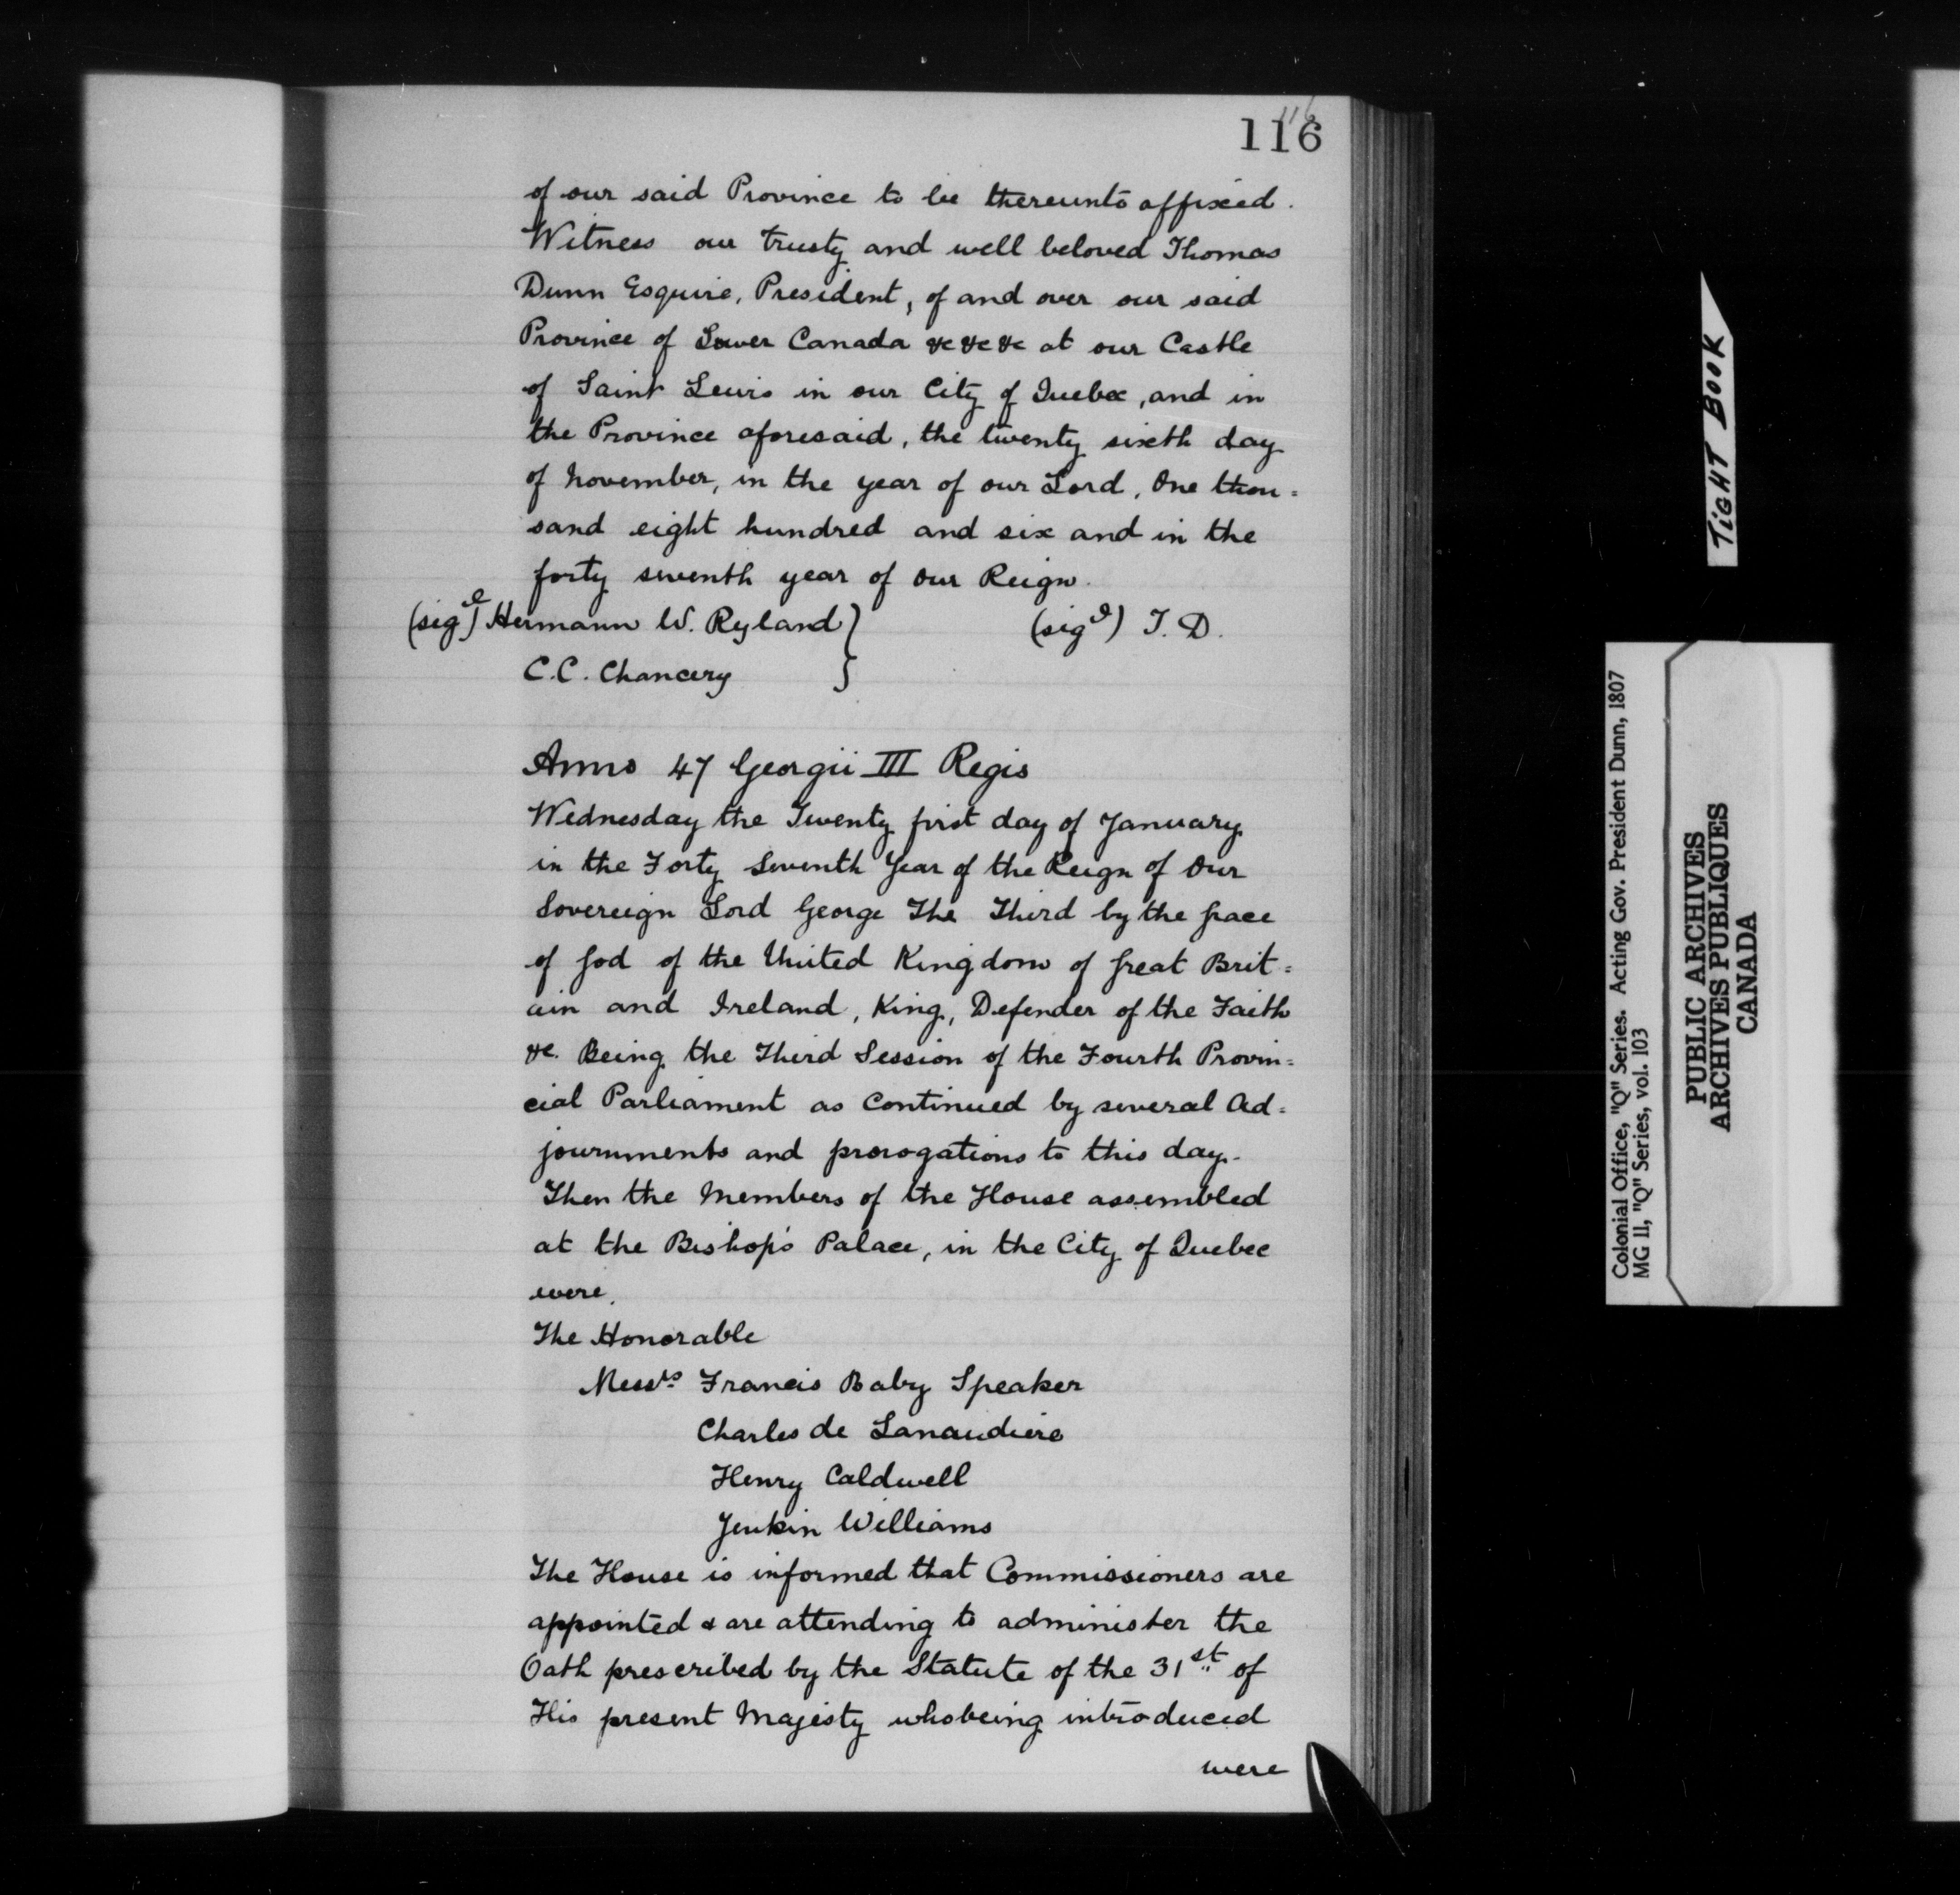 116
116
of our said Province to be thereunto affixed.
Witness our trusty and well beloved Thomas
Dunn Esquire, President, of and over our said
Province of Lower Canada &c &c &c at our Castle
of Saint Lewis in our City of Quebec, and in
the Province aforesaid, the twenty sixth day
of November, in the year of our Lord, One thou=
sand eight hundred and six and in the
forty seventh year of Our Reign.
(sigd) Hermann W. Ryland } (sigd) T. D.
C.C. Chancery }
Anno 47 Georgii III Regis
Wednesday the Twenty first day of January
in the Forty Seventh Year of the Reign of Our
Sovereign Lord George The Third by the Grace
of God of the United Kingdom of Great Brit=
ain and Ireland, King, Defender of the Faith
&c. Being the Third Session of the Fourth Provin=
cial Parliament as Continued by several Ad=
journments and prorogations to this day.
Then the Members of the House assembled
at the Bishop's Palace, in the City of Quebec
were,
The Honorable
Messrs Francis Baby Speaker
Charles de Lanaudiere
Henry Caldwell
Jenkin Williams
The House is informed that Commissioners are
appointed & are attending to administer the
Oath prescribed by the Statute of the 31st of
His present Majesty who being introduced
were
TIGHT BOOK
Colonial Office, "Q" Series. Acting Gov. President Dunn, 1807
MG 11, "Q" Series, vol. 103
PUBLIC ARCHIVES
ARCHIVES PUBLIQUES
CANADA